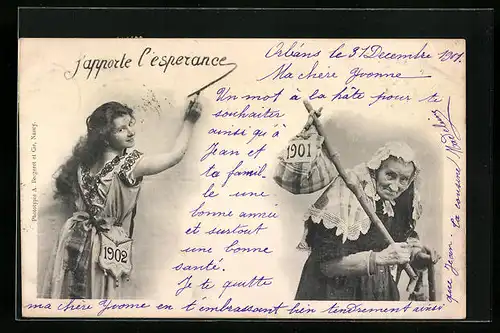 j'apporte l'esperance
Orléans le 31 Decembre 1901.
Ma chère Yvonne
Un mot à la hâte pour te
souhaiter
ainsi qu'à
Jean et
ta famil-
le une
bonne année
et surtout
une bonne
santé.
Je te quitte
ma chère Yvonne en t'embrassant bien tendrement ainsi
que Jean ta cousine
1901
1902
Phototypie A. Bergeret et Cie, Nancy.